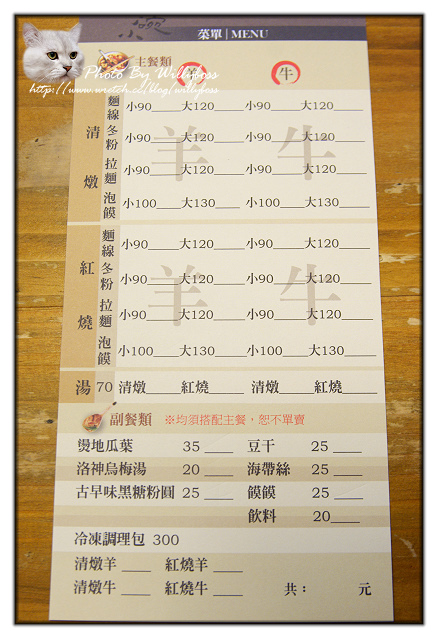 菜單 | MENU
主餐類 羊 牛
Photo By Willyboss
http://www.wretch.cc/blog/willyboss
清燉
麵線 小90 大120 小90 大120
冬粉 小90 大120 小90 大120
拉麵 小90 大120 小90 大120
泡饃 小100 大130 小100 大130
羊 牛
紅燒
麵線 小90 大120 小90 大120
冬粉 小90 大120 小90 大120
拉麵 小90 大120 小90 大120
泡饃 小100 大130 小100 大130
羊 牛
湯 70 清燉 紅燒 清燉 紅燒
副餐類 ※均須搭配主餐，恕不單賣
燙地瓜葉 35 豆干 25
洛神烏梅湯 20 海帶絲 25
古早味黑糖粉圓 25 饃饃 25
飲料 20
冷凍調理包 300
清燉羊 紅燒羊
清燉牛 紅燒牛 共： 元